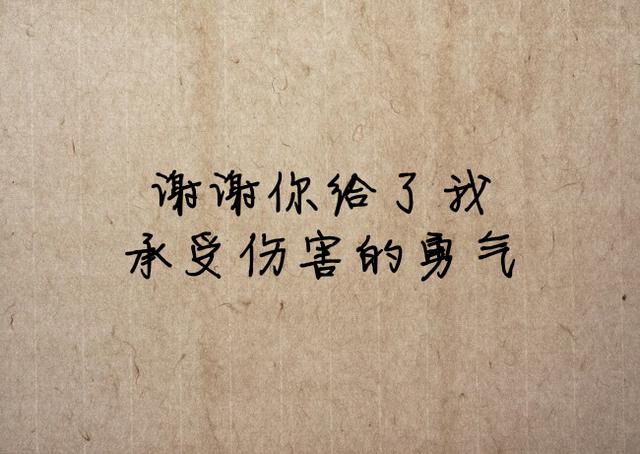 谢谢你给了我
承受伤害的勇气